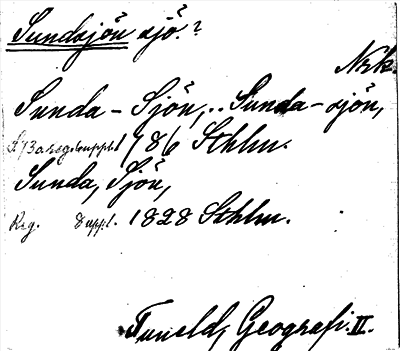 Sundsjön sjö.?
Nrk.
Sunda-Sjön,.. Sunda-sjön,
suppl. 1786 Sthlm.
Sunda, Sjön,
Reg. 8 uppl. 1828 Sthlm.
Tuneld, Geografi. II.